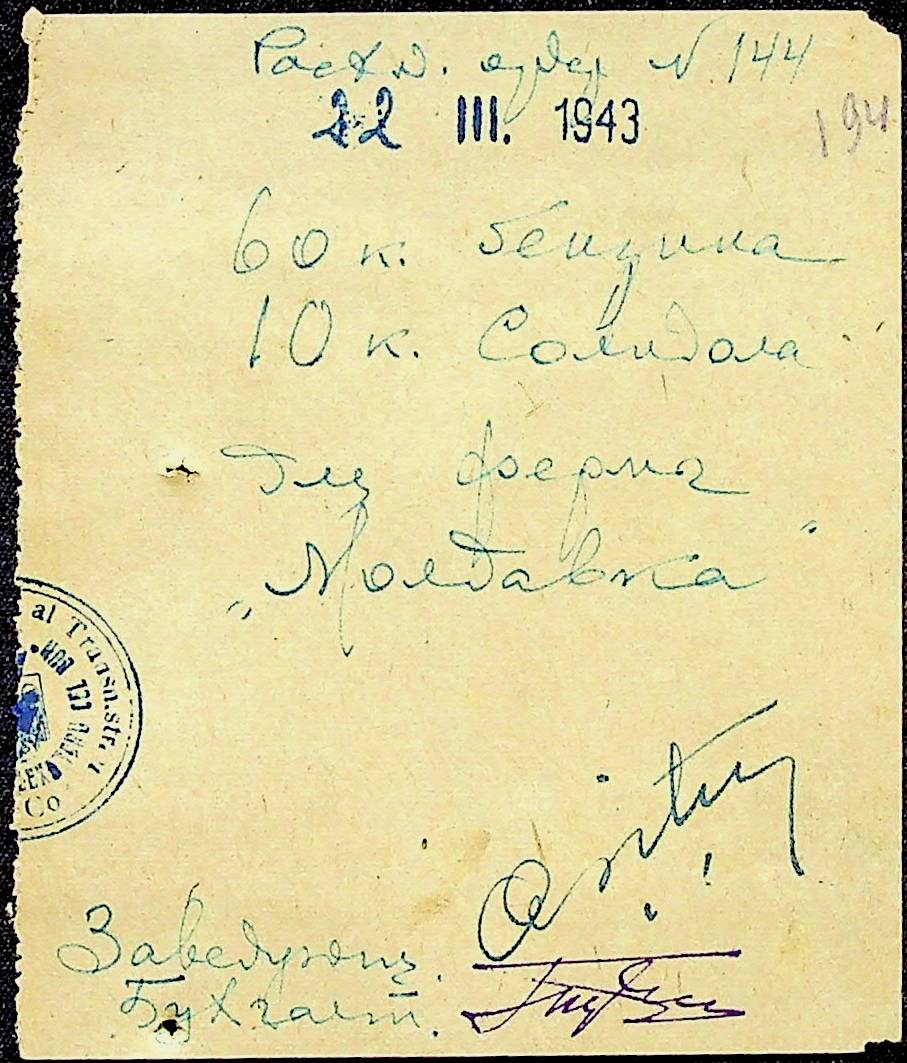 Расход. ордер N 144
22 III. 1943
194
60 к. Бензина
10 к. Солидола
Для ферма
„Молдавка"
al Transn. str.
Co
Заведующ.
Бухгалт.